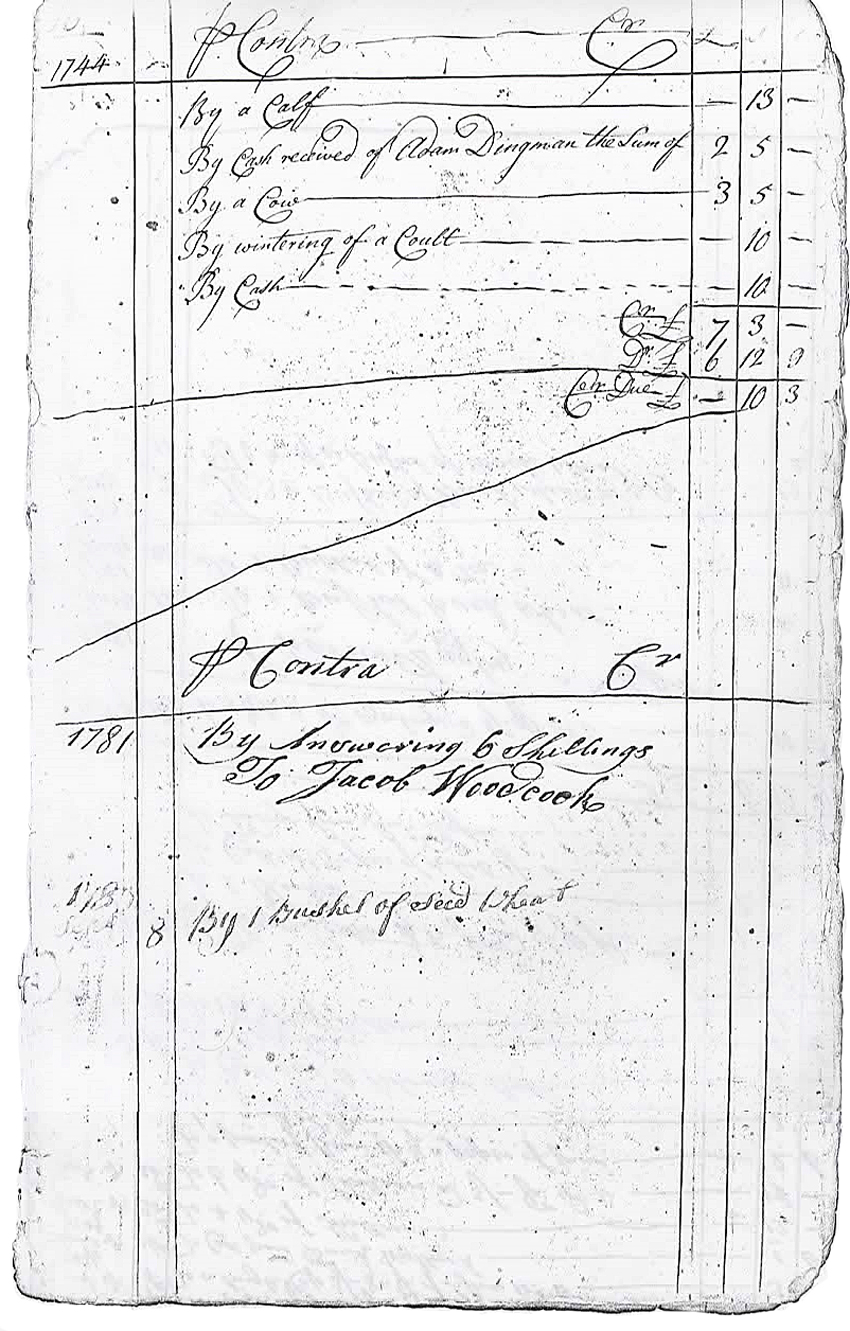 1744 ⅌ Contra Cr £
By a Calf — 13 —
By Cash received of Adam Dingman the Sum of 2 5 —
By a Cow 3 5 —
By wintering of a Coult — 10 —
By Cash — 10 —
Cr £ 7 3 —
Dr £ 6 12 9
Due £ — 10 3
⅌ Contra Cr
1781 By Answering 6 Shillings
To Jacob Woodcock
8 By 1 Bushel of Seed Wheat